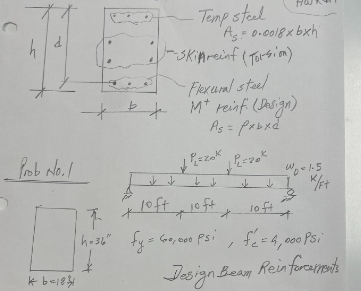 Temp steel
As = 0.0018 x b x h
h
d
skin reinf (Torsion)
Flexural steel
b
M+ reinf. (Design)
As = ρ x b x d
Prob No. 1
PL=20K PL=20K
WD = 1.5 K/Ft
10ft 10ft 10ft
h=36"
fy = 60,000 PSi , f'c = 4,000 PSi
b=18"
Design Beam Reinforcements